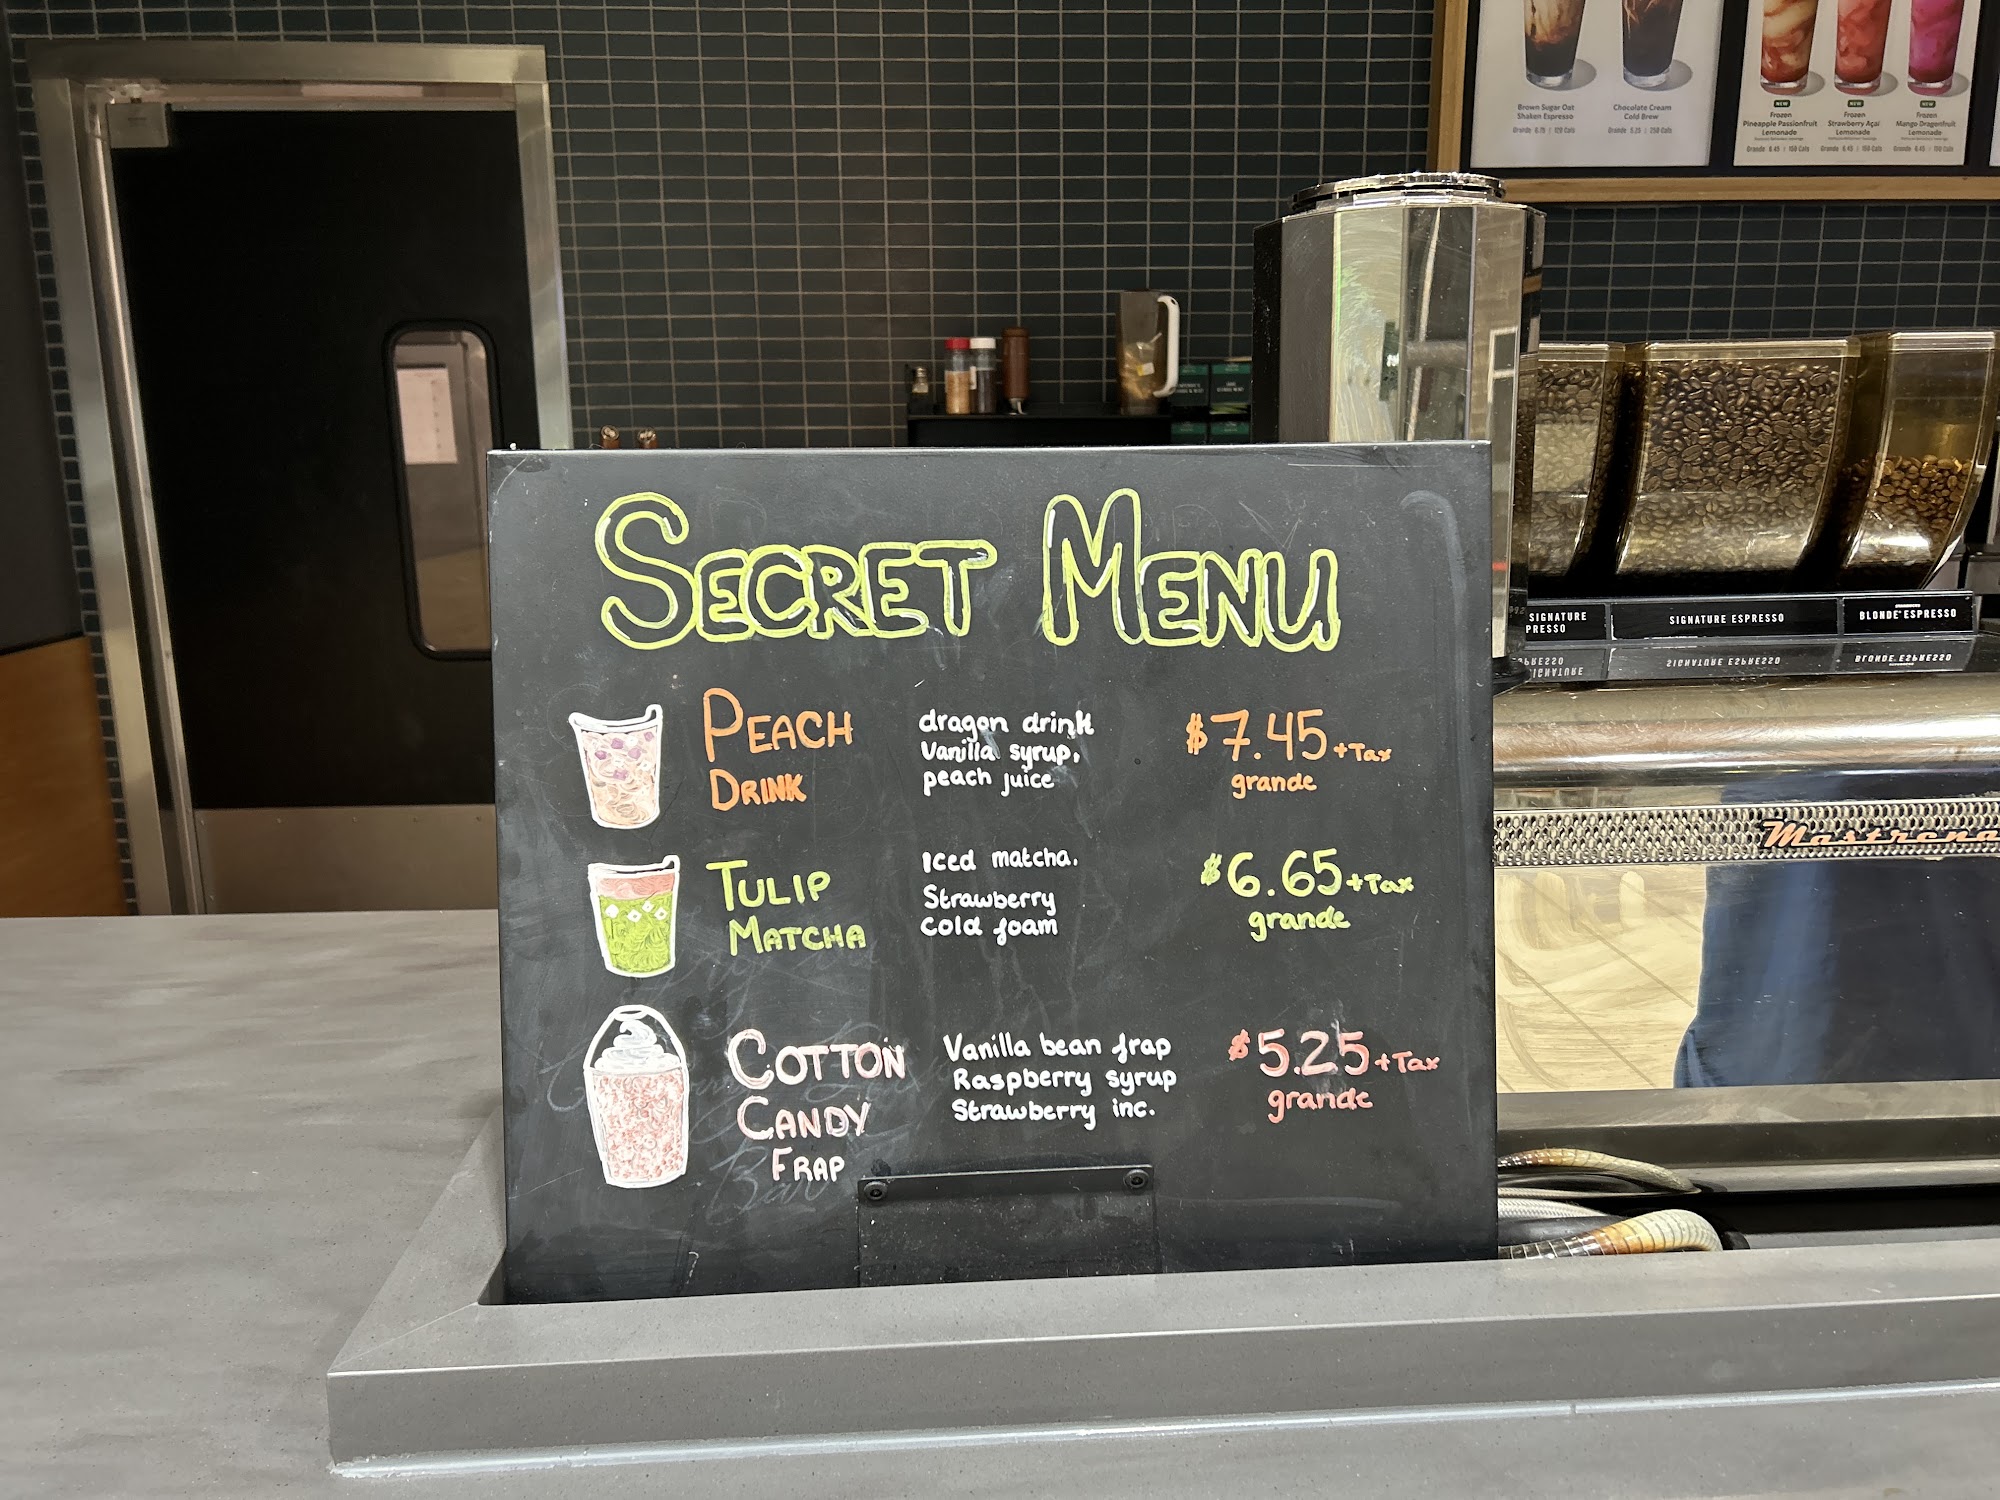 Brown Sugar Oat
Shaken Espresso
Grande 6.75 | 120 Cals
Chocolate Cream
Cold Brew
Grande 5.25 | 250 Cals
NEW
Frozen
Pineapple Passionfruit
Lemonade
Grande 6.45 | 150 Cals
NEW
Frozen
Strawberry Açaí
Lemonade
Grande 6.45 | 150 Cals
NEW
Frozen
Mango Dragonfruit
Lemonade
Grande 6.45 | 150 Cals
SIGNATURE
PRESSO
SIGNATURE ESPRESSO
BLONDE ESPRESSO
Mastrena
SECRET MENU
PEACH
DRINK
dragon drink
Vanilla syrup,
peach juice
$7.45 + Tax
grande
TULIP
MATCHA
Iced matcha.
Strawberry
Cold foam
$6.65 + Tax
grande
COTTON
CANDY
FRAP
Vanilla bean frap
Raspberry syrup
Strawberry inc.
$5.25 + Tax
grande